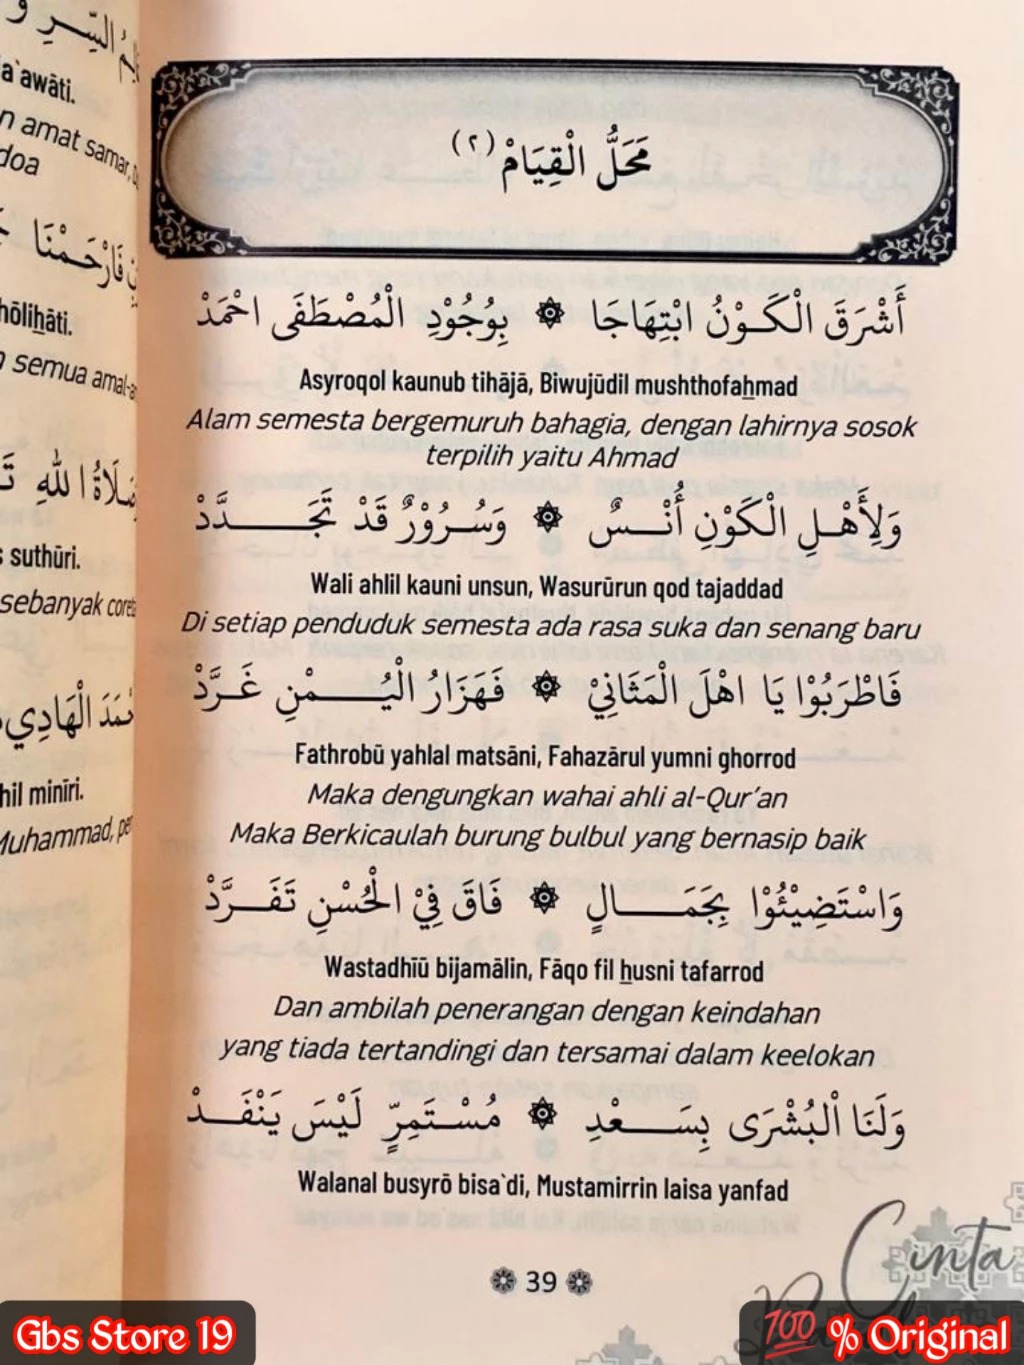 a`awāti.
n amat samar,
doa
فَارْحَمْنَا
hōlihāti.
semua amal-a
صَلَاةُ اللهِ
s suthūri.
sebanyak coreta
الْهَادِي
hil minīri.
Muhammad, pe
مَحَلُّ الْقِيَامْ (٢)
أَشْرَقَ الْكَوْنُ ابْتِهَاجَا ۞ بِوُجُوْدِ الْمُصْطَفَى احْمَدْ
Asyroqol kaunub tihājā, Biwujūdil mushthofahmad
Alam semesta bergemuruh bahagia, dengan lahirnya sosok
terpilih yaitu Ahmad
وَلِأَهْلِ الْكَوْنِ أُنْسٌ ۞ وَسُرُوْرٌ قَدْ تَجَدَّدْ
Wali ahlil kauni unsun, Wasurūrun qod tajaddad
Di setiap penduduk semesta ada rasa suka dan senang baru
فَاطْرَبُوْا يَا اهْلَ الْمَثَانِيْ ۞ فَهَزَارُ الْيُمْنِ غَرَّدْ
Fathrobū yahlal matsāni, Fahazārul yumni ghorrod
Maka dengungkan wahai ahli al-Qur'an
Maka Berkicaulah burung bulbul yang bernasip baik
وَاسْتَضِيْئُوْا بِجَمَالٍ ۞ فَاقَ فِي الْحُسْنِ تَفَرَّدْ
Wastadhīū bijamālin, Fāqo fil husni tafarrod
Dan ambilah penerangan dengan keindahan
yang tiada tertandingi dan tersamai dalam keelokan
وَلَنَا الْبُشْرَى بِسَعْدِ ۞ مُسْتَمِرٍّ لَيْسَ يَنْفَدْ
Walanal busyrō bisa`di, Mustamirrin laisa yanfad
39
Cinta
Gbs Store 19
💯 % Original